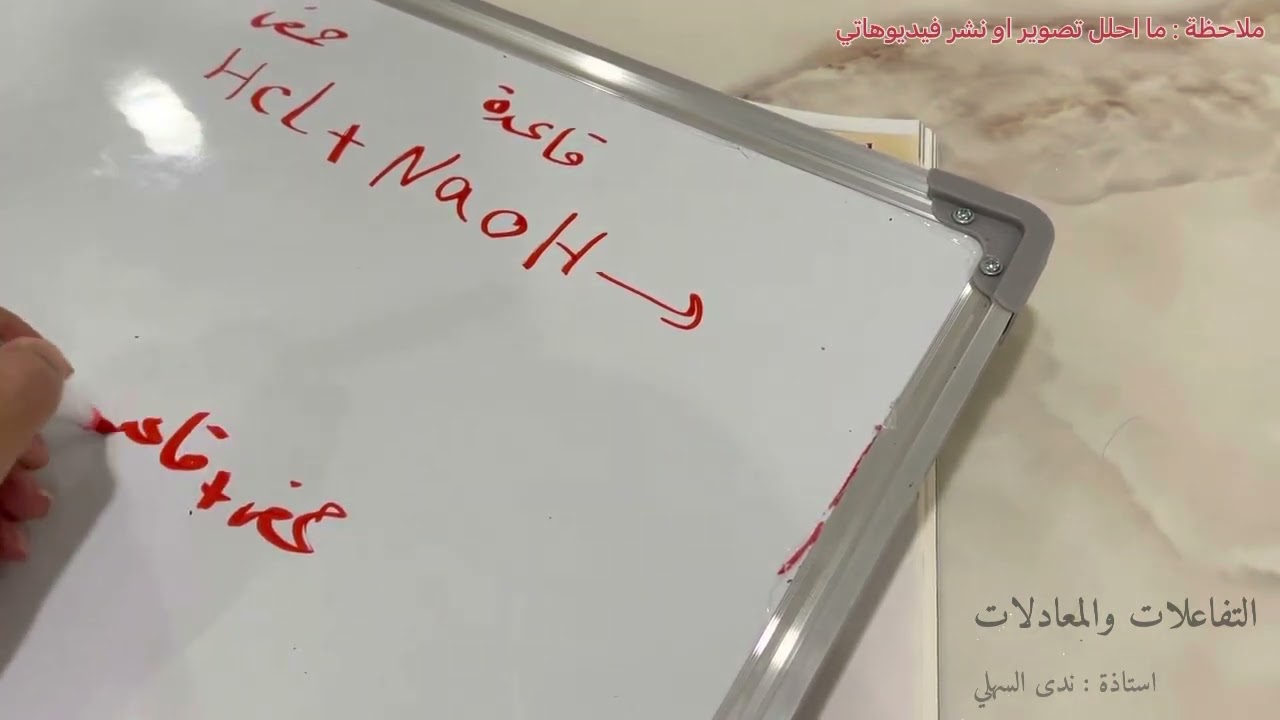 ملاحظة : ما احلل تصوير او نشر فيديوهاتي
حمض
قاعدة
HCL + NaOH →
حمض + قاعد
التفاعلات والمعادلات
استاذة : ندى السهلي